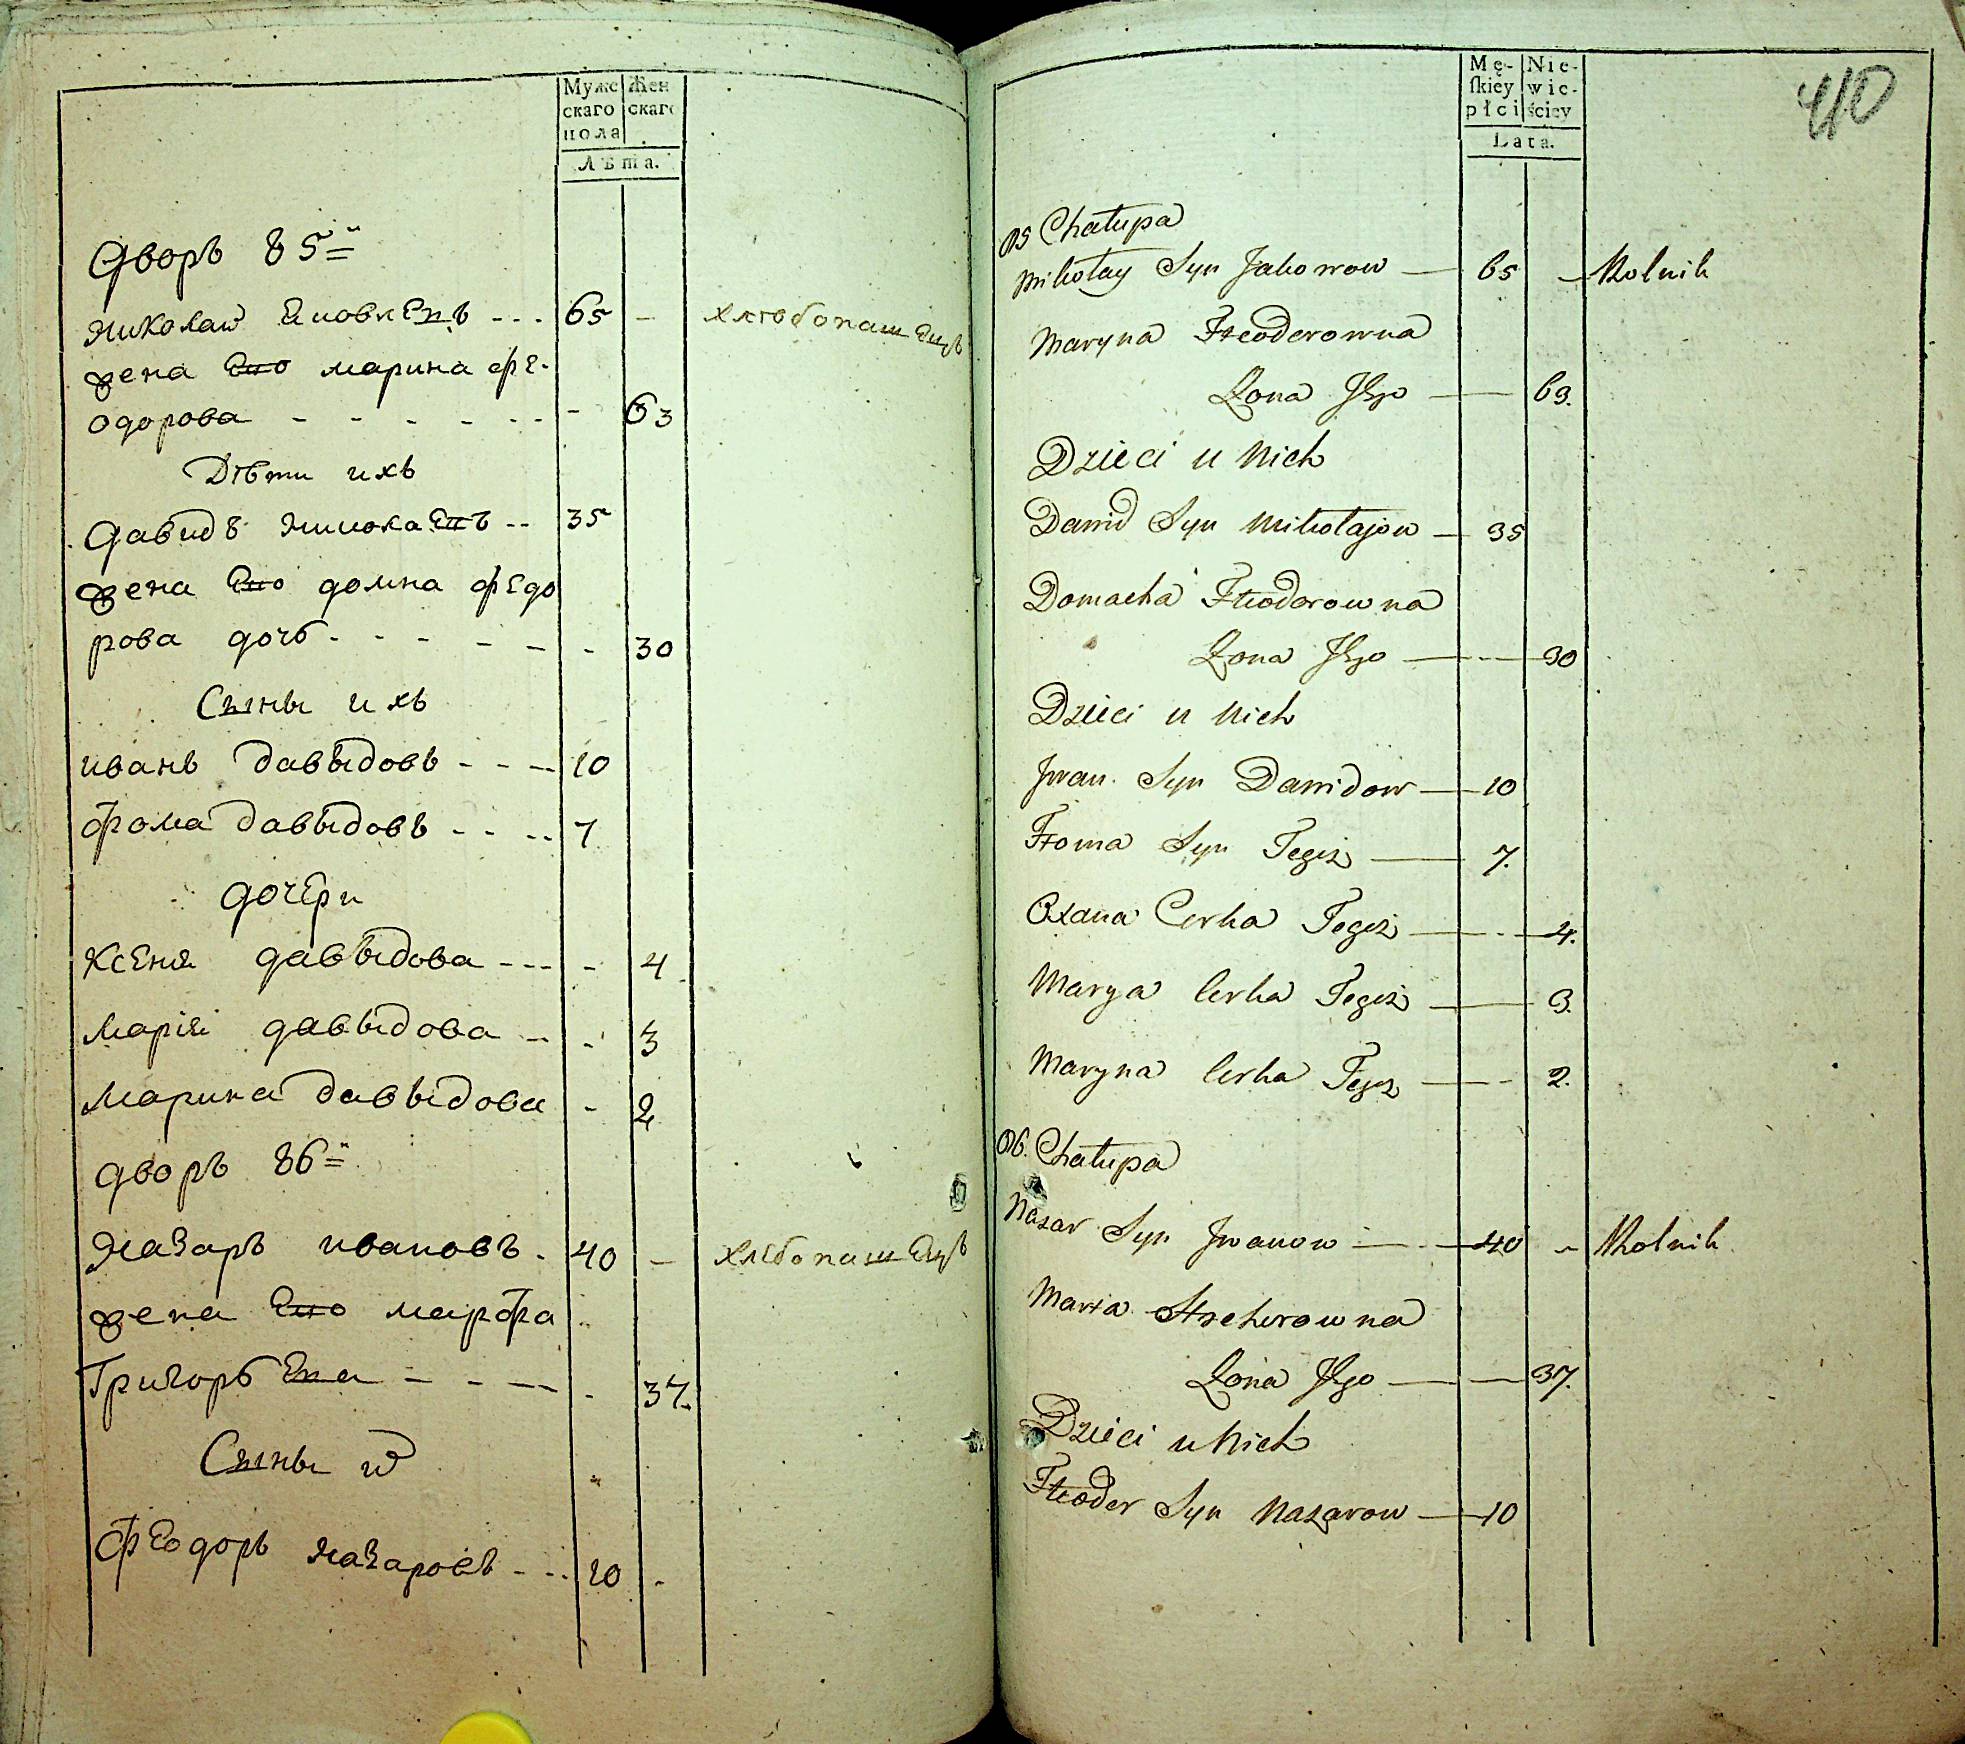 Мужс
скаго
пола
Жен
скаго
Лѣта.
Дворъ 85й
Николай Яковлевъ --- 65 - хлѣбопашецъ
жена его марина фе-
одорова - - - - - - 63
Дѣти ихъ
Давидъ Николаевъ -- 35
жена его домна федо
рова дочь - - - - - 30
Сыны ихъ
иванъ давыдовъ --- 10
фома давыдовъ --- 7
дочери
Ксеня давыдова --- - 4
Марія давыдова -- - 3
Марина давыдова - 2
дворъ 86й
Назаръ ивановъ - 40 - хлѣбопашецъ
жена его марфа
Григорьева - - - - 37.
Сыны
феодоръ назаровъ --- 10 -
Mę-
skiey
płci
Nie-
wie-
ściey
Lata.
40
85 Chałupa
Mikołay Syn Jakowow — 65 - Rolnik
Maryna Fteoderowna
Żona Jego — 63.
Dzieci u Nich
Dawid Syn Mikołajow — 35
Domacha Fteodorowna
Żona Jego — 30
Dzieci u Nich
Jwan Syn Dawidow — 10
Ftoma Syn Tegoż — 7.
Oxana Corka Tegoż — 4.
Marya Corka Tegoż — 3.
Maryna Corka Tegoż — 2.
86. Chałupa
Nazar Syn Jwanow — 40 - Rolnik
Marta
Żona Jego — 37.
Dzieci u Nich
Fteoder Syn Nazarow — 10